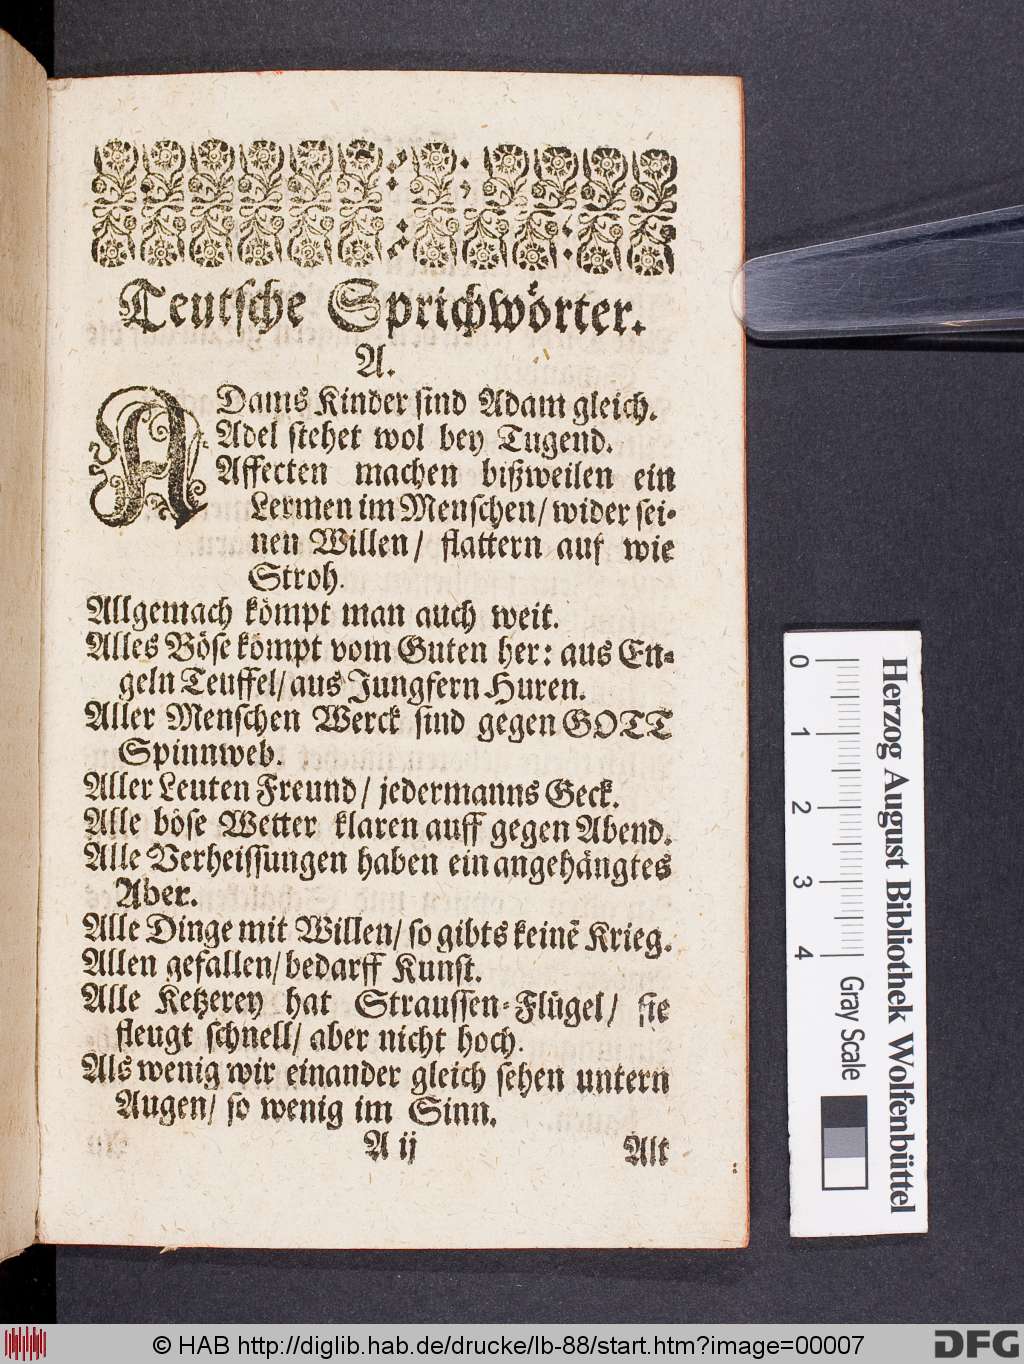 Teutsche Sprichwörter.
A.
ADams Kinder sind Adam gleich.
Adel stehet wol bey Tugend.
Affecten machen bißweilen ein
Lermen im Menschen/ wider sei-
nen Willen/ flattern auf wie
Stroh.
Allgemach kömpt man auch weit.
Alles Böse kömpt vom Guten her: aus En-
geln Teuffel/ aus Jungfern Huren.
Aller Menschen Werck sind gegen GOTT
Spinnweb.
Aller Leuten Freund/ jedermanns Geck.
Alle böse Wetter klaren auff gegen Abend.
Alle Verheissungen haben ein angehängtes
Aber.
Alle Dinge mit Willen/ so gibts keinẽ Krieg.
Allen gefallen/ bedarff Kunst.
Alle Ketzerey hat Straussen-Flügel/ sie
fleugt schnell/ aber nicht hoch.
Als wenig wir einander gleich sehen untern
Augen/ so wenig im Sinn.
A ij
Alt
0 1 2 3 4
Herzog August Bibliothek Wolfenbüttel
Gray Scale
© HAB http://diglib.hab.de/drucke/lb-88/start.htm?image=00007
DFG